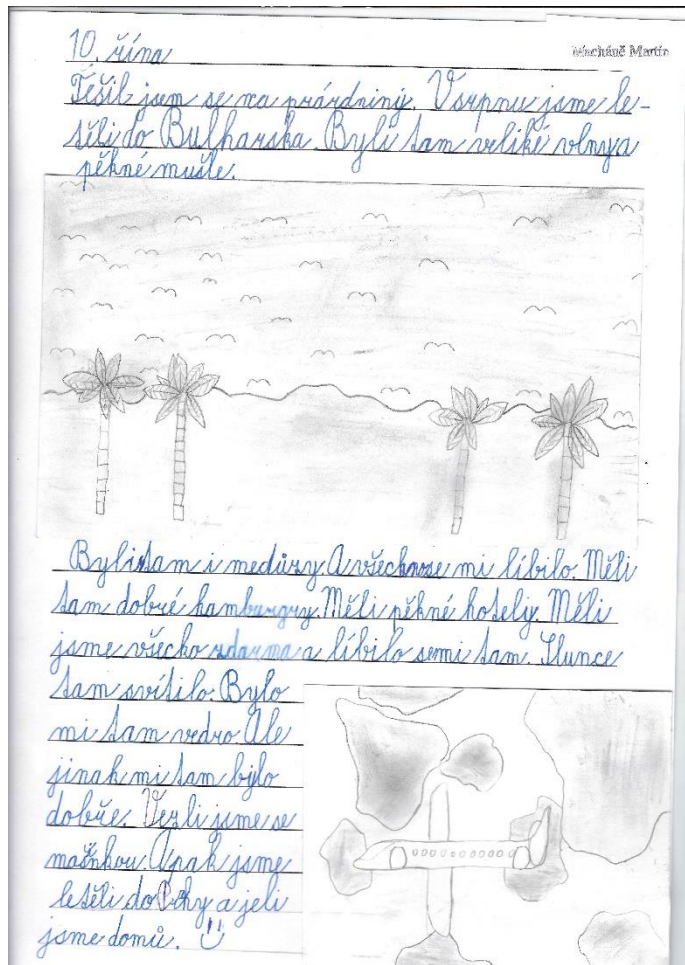 10. řína
Macháně Martin
Těšil jsem se na prárdniný. Vsrpnu jsme le-
těli do Bulharska. Byli tam veliké vlny a
pěkné mušle.
Byli tam i medůzy. A všechnose mi líbilo. Měli
tam dobré hamburgry. Měli pěkné hotely. Měli
jsme všecko zdarma a líbilo semi tam. Slunce
tam svítilo. Bylo
mi tam vedro. Ale
jinak mi tam bylo
dobře. Vezli jsme se
mašinkou. Apak jsme
letěli do Prhy a jeli
jsme domů.